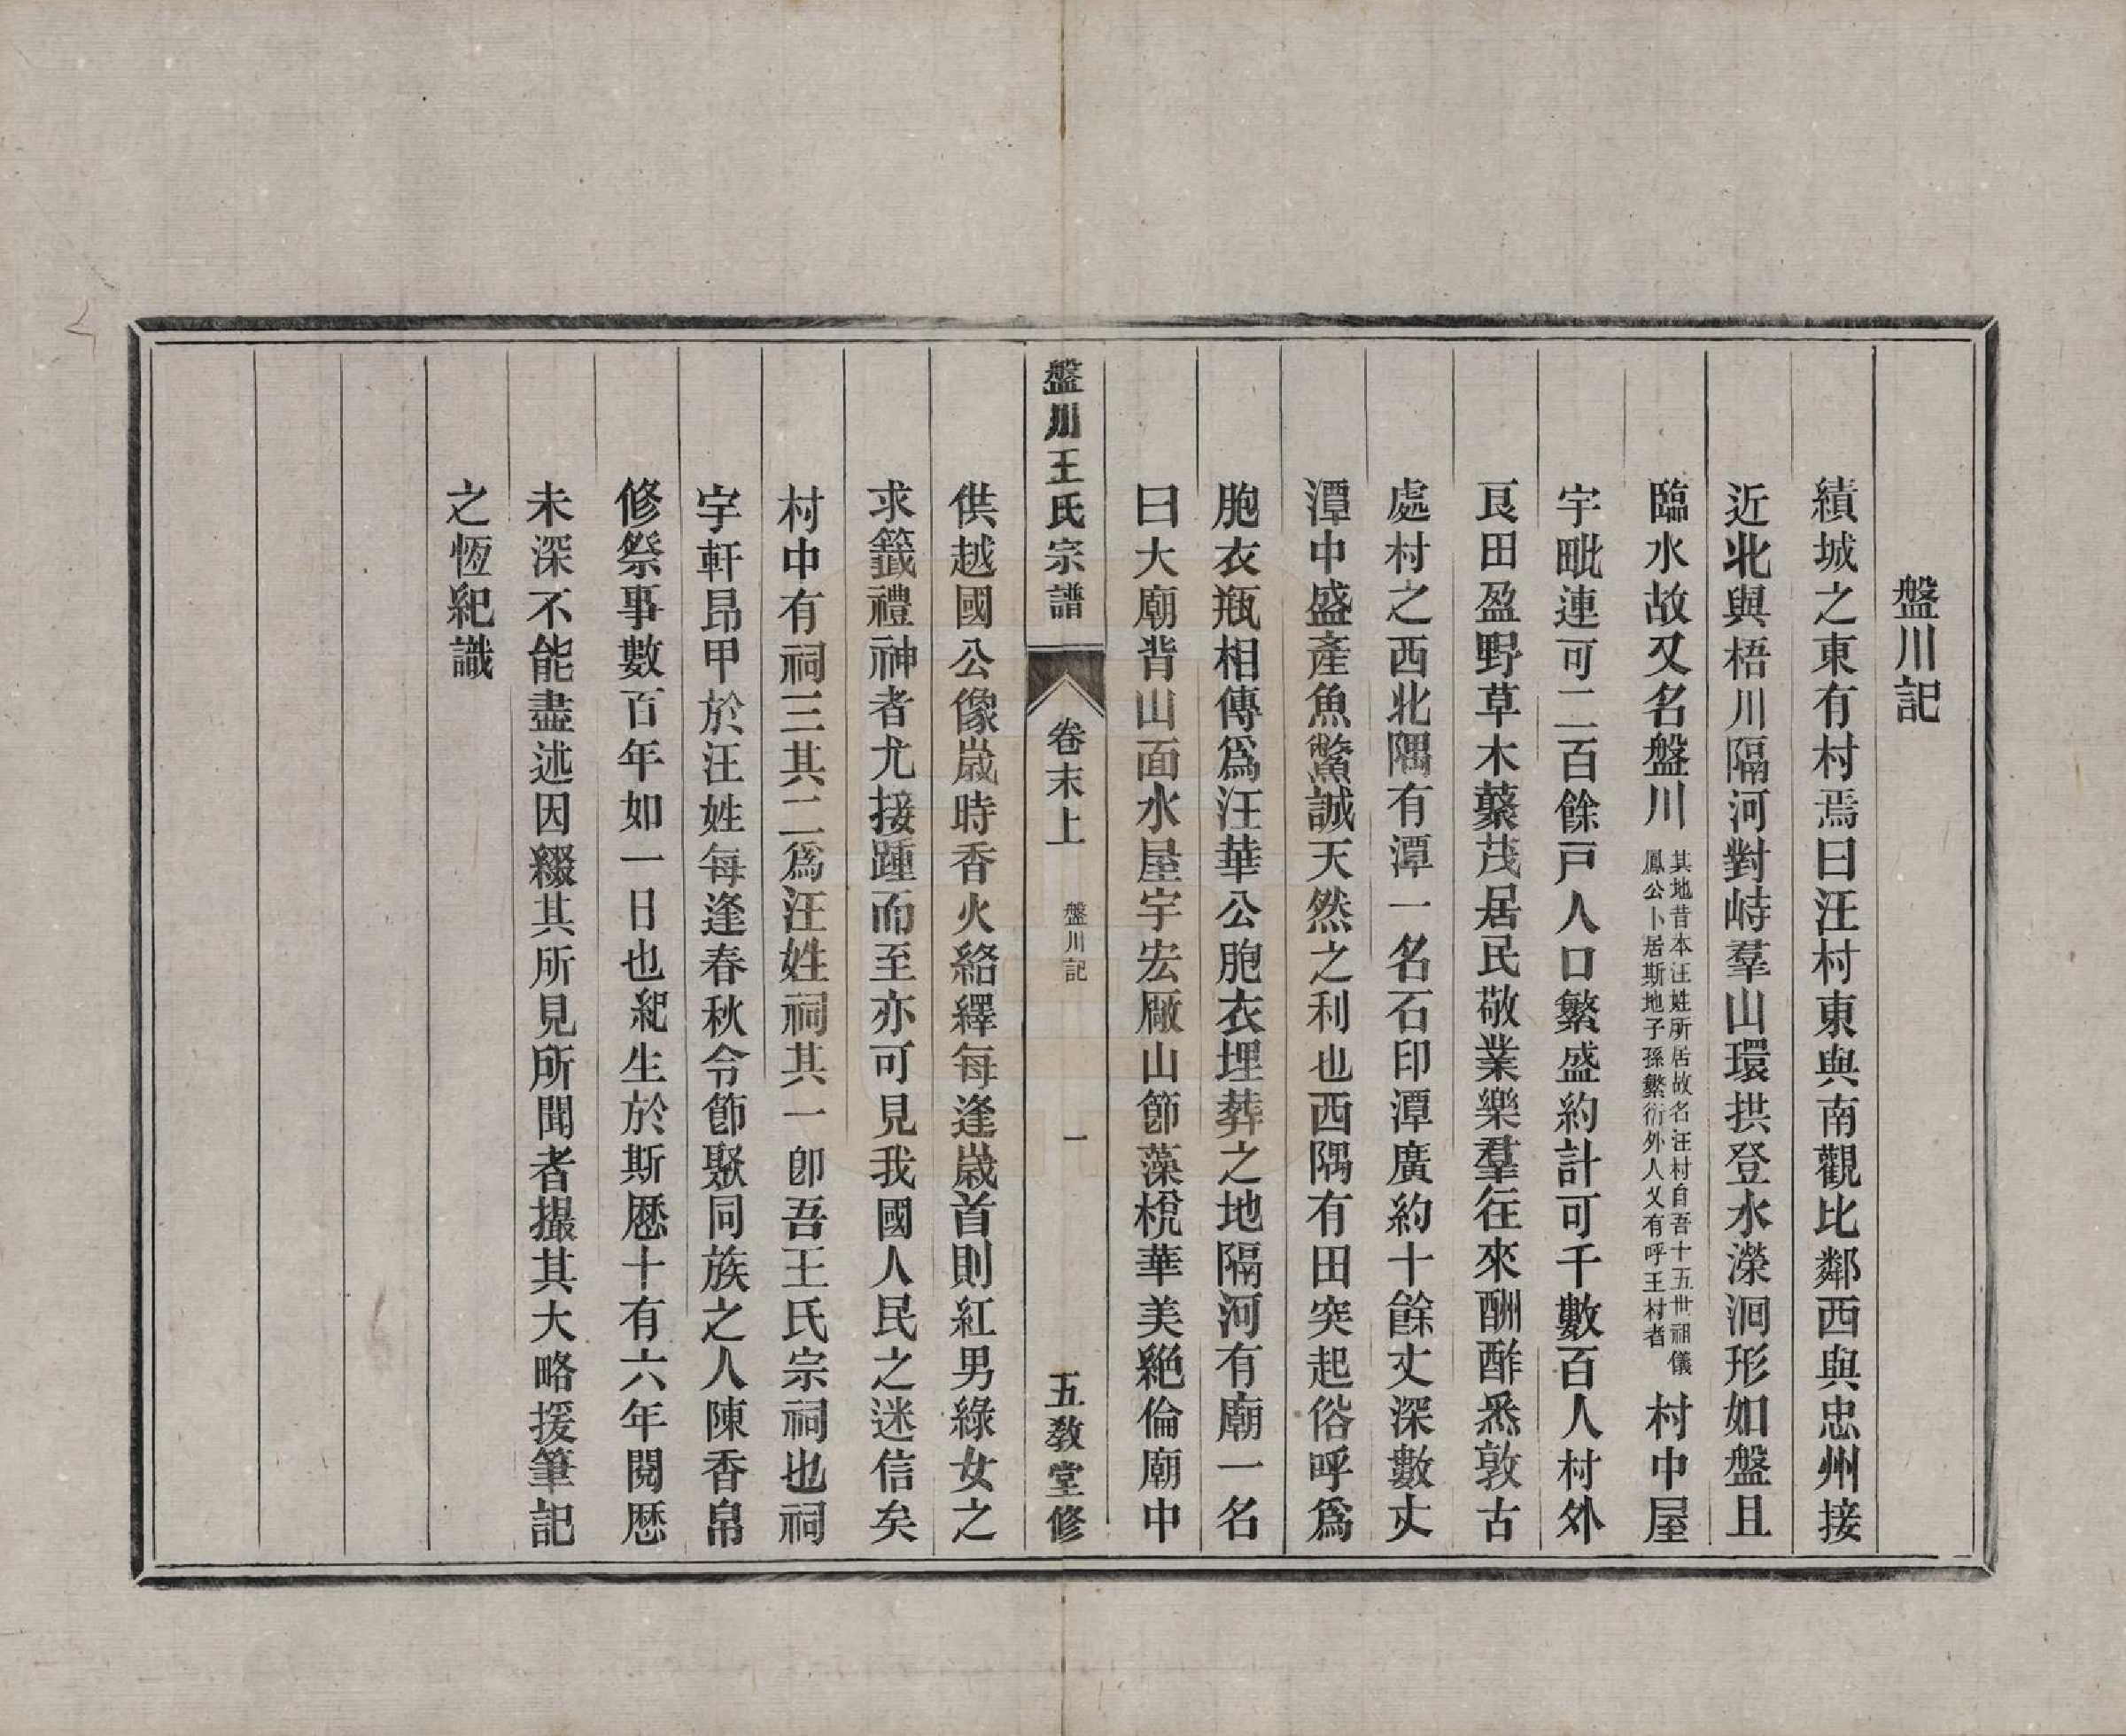 盤川記
績城之東有村焉曰汪村東與南觀比鄰西與忠州接
近北與梧川隔河對峙羣山環拱登水濚洄形如盤且
臨水故又名盤川
其地昔本汪姓所居故名汪村自吾十五世祖儀
鳳公卜居斯地子孫繁衍外人又有呼王村者
村中屋
宇毗連可二百餘戸人口繁盛約計可千數百人村外
良田盈野草木蓁茂居民敬業樂羣往來酬酢悉敦古
處村之西北隅有潭一名石印潭廣約十餘丈深數丈
潭中盛產魚鱉誠天然之利也西隅有田突起俗呼爲
胞衣瓶相傳爲汪華公胞衣埋葬之地隔河有廟一名
曰大廟背山面水屋宇宏厰山節藻梲華美絶倫廟中
盤川王氏宗譜
卷末上
盤川記
一
五敎堂修
供越國公像嵗時香火絡繹每逢嵗首則紅男綠女之
求籤禮神者尤接踵而至亦可見我國人民之迷信矣
村中有祠三其二爲汪姓祠其一卽吾王氏宗祠也祠
宇軒昂甲於汪姓每逢春秋令節聚同族之人陳香帛
修祭事數百年如一日也紀生於斯歷十有六年閱歷
未深不能盡述因綴其所見所聞者撮其大略援筆記
之恆紀識